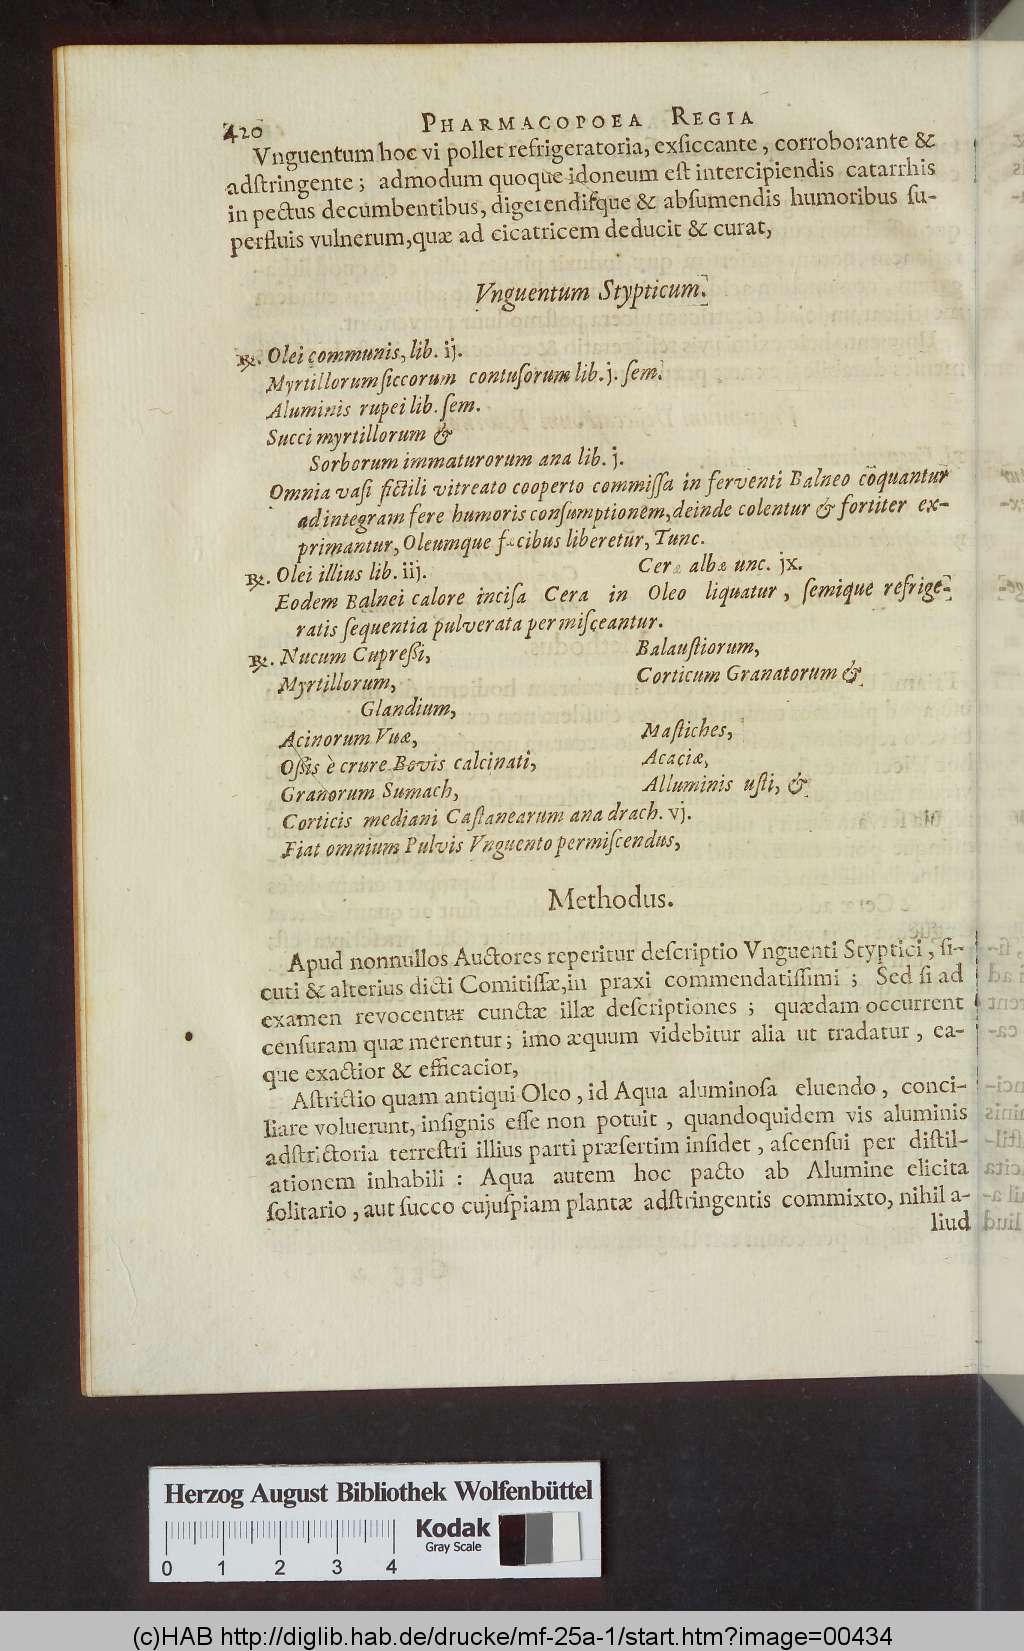 420 PHARMACOPOEA REGIA
Vnguentum hoc vi pollet refrigeratoria, exſiccante, corroborante &
adſtringente; admodum quoque idoneum eſt intercipiendis catarrhis
in pectus decumbentibus, digerendiſque & abſumendis humoribus ſu-
perfluis vulnerum, quæ ad cicatricem deducit & curat,
Vnguentum Stypticum.
℞. Olei communis, lib. ij.
Myrtillorum ſiccorum contuſorum lib. j. ſem.
Aluminis rupei lib. ſem.
Succi myrtillorum &
Sorborum immaturorum ana lib. j.
Omnia vaſi fictili vitreato cooperto commiſſa in ferventi Balneo cöquantur
ad integram fere humoris conſumptionem, deinde colentur & fortiter ex-
primantur, Oleumque fæcibus liberetur, Tunc.
℞. Olei illius lib. iij. Ceræ albæ unc. jx.
Eodem Balnei calore inciſa Cera in Oleo liquatur, ſemique refrige-
ratis ſequentia pulverata permiſceantur.
℞. Nucum Cupreſſi, Balauſtiorum,
Myrtillorum, Corticum Granatorum &
Glandium,
Acinorum Vuæ, Maſtiches,
Oſſis è crure Bovis calcinati, Acaciæ,
Granorum Sumach, Alluminis uſti, &
Corticis mediani Caſtanearum ana drach. vj.
Fiat omnium Pulvis Vnguento permiſcendus,
Methodus.
Apud nonnullos Auctores reperitur deſcriptio Vnguenti Styptici, ſi-
cuti & alterius dicti Comitiſſæ, in praxi commendatiſſimi; Sed ſi ad
examen revocentur cunctæ illæ deſcriptiones; quædam occurrent
cenſuram quæ merentur; imo æquum videbitur alia ut tradatur, ea-
que exactior & efficacior,
Aſtrictio quam antiqui Oleo, id Aqua aluminoſa eluendo, conci-
liare voluerunt, inſignis eſſe non potuit, quandoquidem vis aluminis
adſtrictoria terreſtri illius parti præſertim inſidet, aſcenſui per diſtil-
ationem inhabili: Aqua autem hoc pacto ab Alumine elicita
ſolitario, aut ſucco cujuſpiam plantæ adſtringentis commixto, nihil a-
liud
Herzog August Bibliothek Wolfenbüttel
Kodak
Gray Scale
0 1 2 3 4
(c)HAB http://diglib.hab.de/drucke/mf-25a-1/start.htm?image=00434